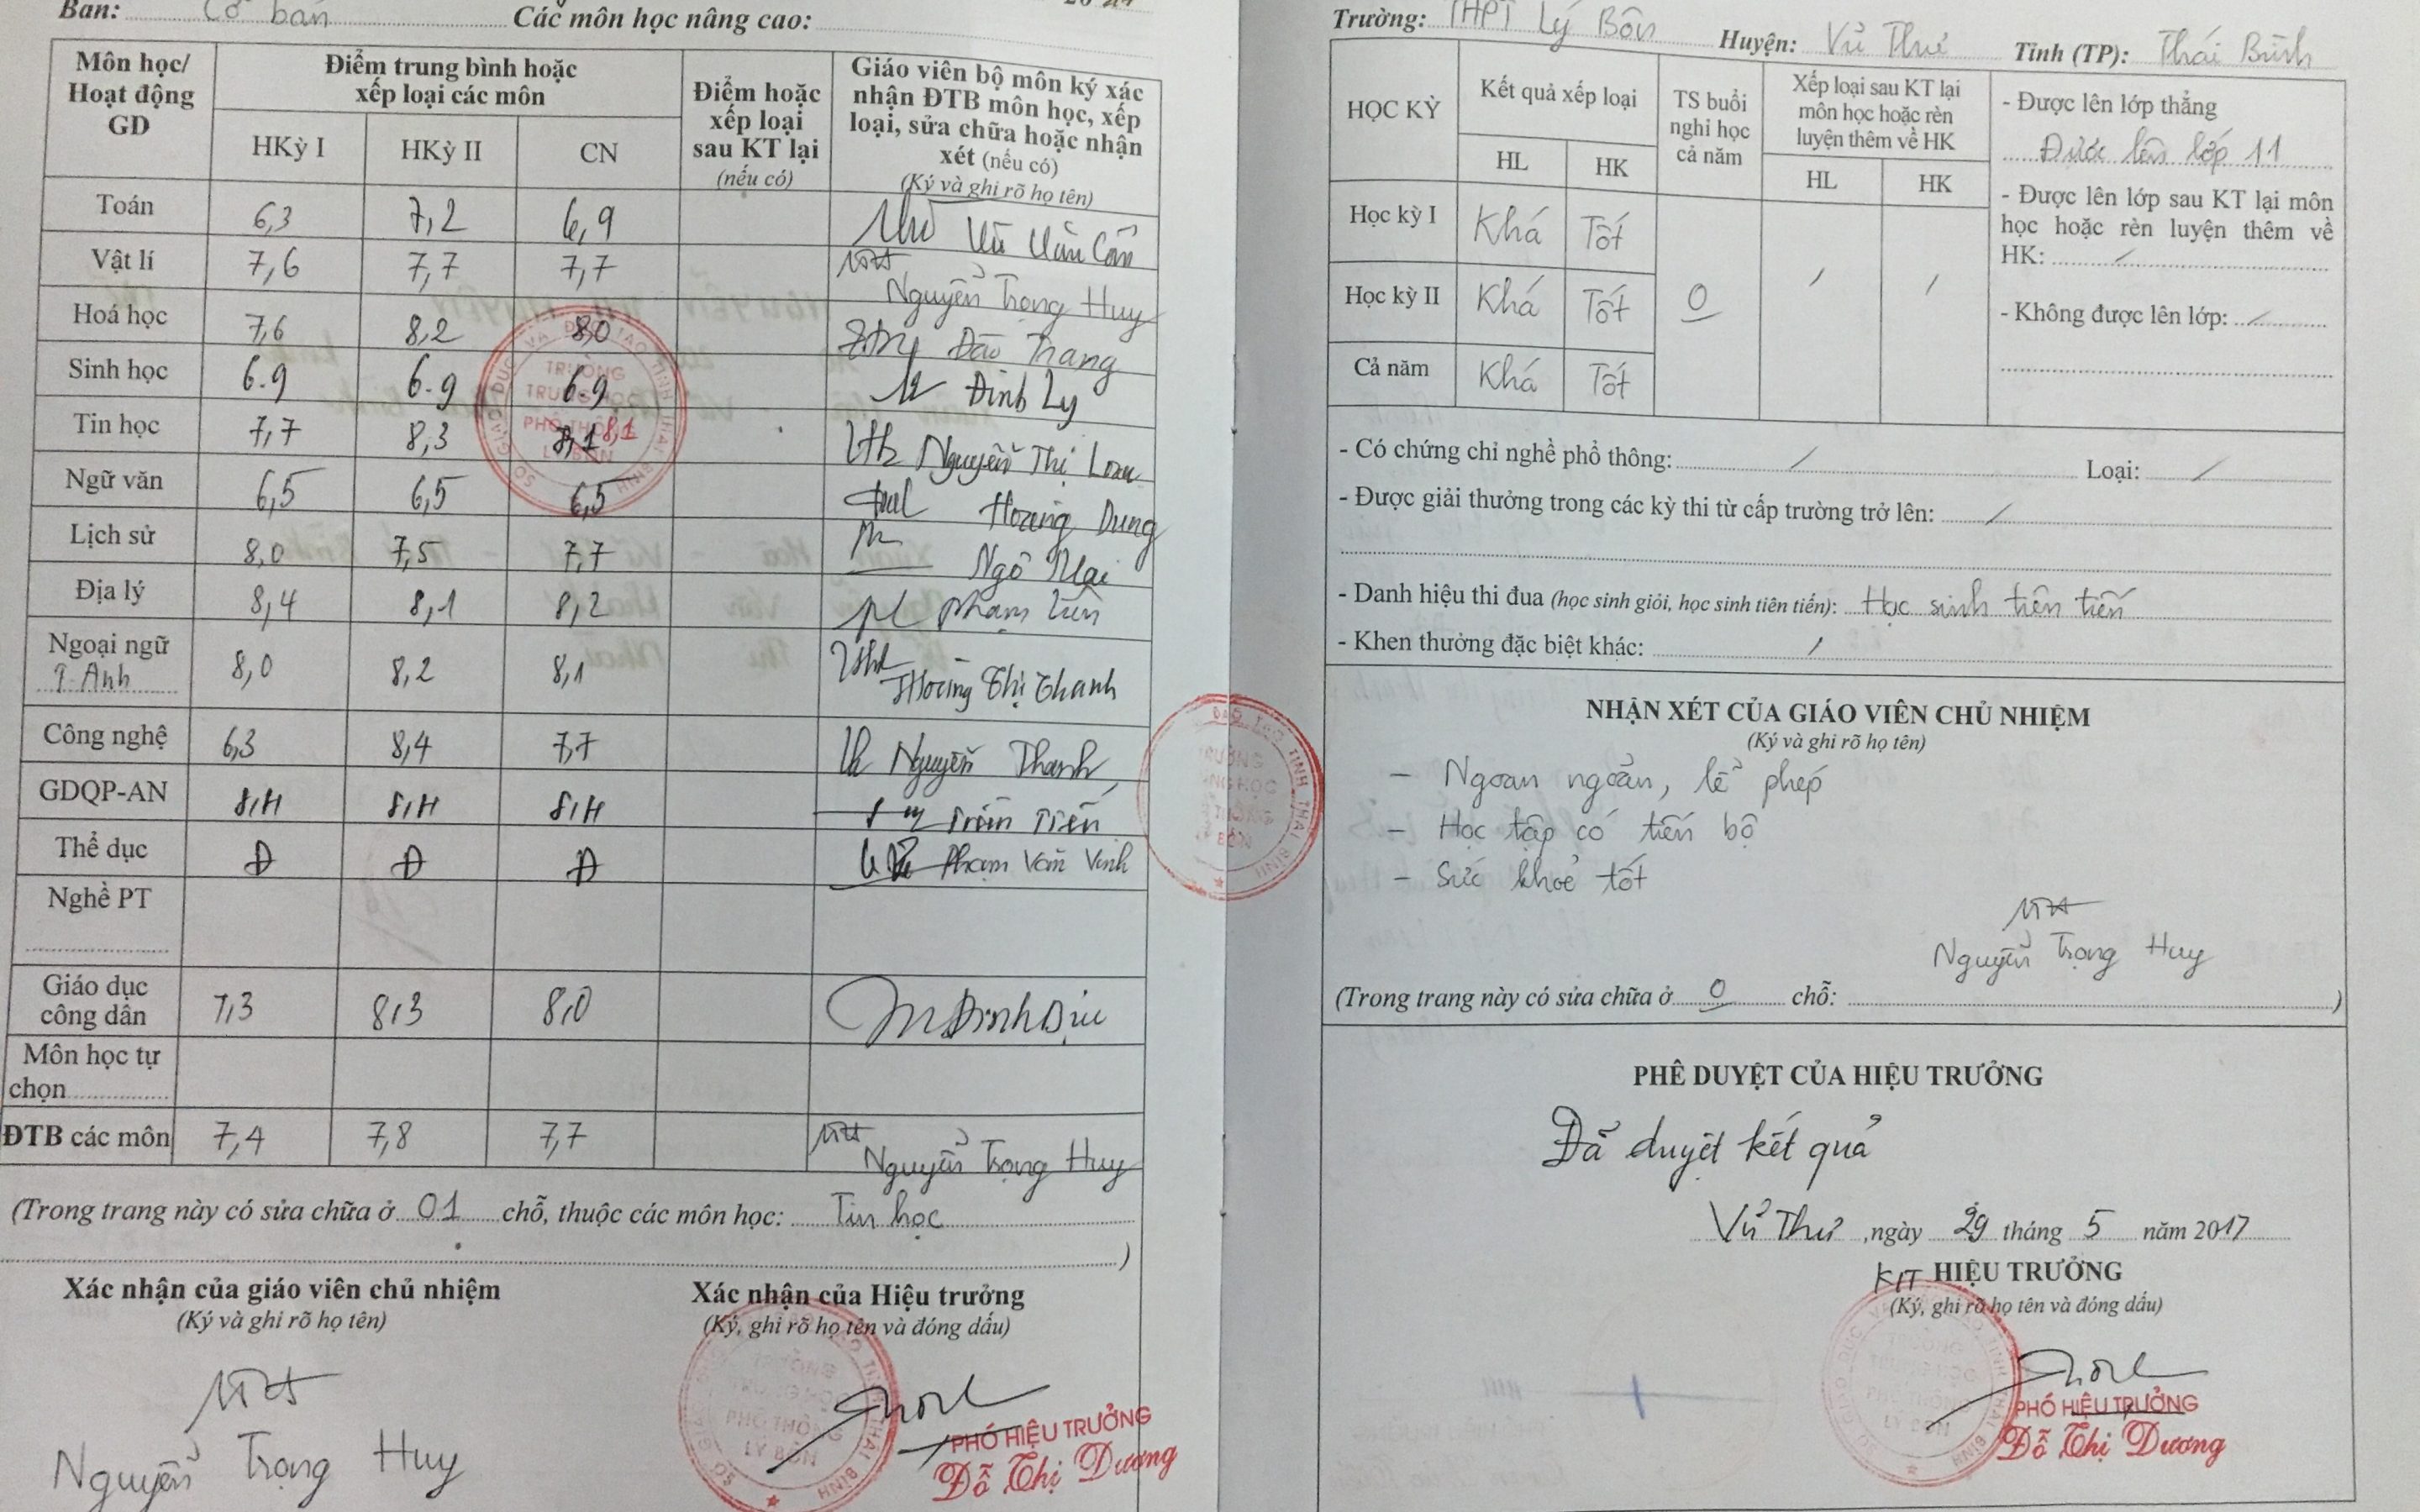 Ban: Cơ bản Các môn học nâng cao:
Môn học/ Hoạt động GD
Điểm trung bình hoặc xếp loại các môn
Điểm hoặc xếp loại sau KT lại (nếu có)
Giáo viên bộ môn ký xác nhận ĐTB môn học, xếp loại, sửa chữa hoặc nhận xét (nếu có)
(Ký và ghi rõ họ tên)
HKỳ I HKỳ II CN
Toán 6,3 7,2 6,9 Vũ Văn Cần
Vật lí 7,6 7,7 7,7 Nguyễn Trọng Huy
Hoá học 7,6 8,2 8,0 Đào Trang
Sinh học 6.9 6.9 6.9 Đinh Ly
Tin học 7,7 8,3 8,1 8,1 Nguyễn Thị Loan
Ngữ văn 6,5 6,5 6,5 Hoàng Dung
Lịch sử 8,0 7,5 7,7 Ngô Mai
Địa lý 8,4 8,1 8,2 Phạm
Ngoại ngữ T. Anh 8,0 8,2 8,1 Hoàng Thị Thanh
Công nghệ 6,3 8,4 7,7 Nguyễn Thanh
GDQP-AN Trần Tiến
Thể dục Đ Đ Đ Phạm Văn Vinh
Nghề PT
Giáo dục công dân 7,3 8,3 8,0
Môn học tự chọn
ĐTB các môn 7,4 7,8 7,7 Nguyễn Trọng Huy
(Trong trang này có sửa chữa ở 01 chỗ, thuộc các môn học: Tin học
)
Xác nhận của giáo viên chủ nhiệm
(Ký và ghi rõ họ tên)
Nguyễn Trọng Huy
Xác nhận của Hiệu trưởng
(Ký, ghi rõ họ tên và đóng dấu)
PHÓ HIỆU TRƯỞNG
Đỗ Thị Dương
Trường: THPT Lý Bôn Huyện: Vũ Thư Tỉnh (TP): Thái Bình
HỌC KỲ
Kết quả xếp loại
TS buổi nghỉ học cả năm
Xếp loại sau KT lại môn học hoặc rèn luyện thêm về HK
HL HK HL HK
Học kỳ I Khá Tốt
Học kỳ II Khá Tốt 0 / /
Cả năm Khá Tốt
- Được lên lớp thẳng
Được lên lớp 11
- Được lên lớp sau KT lại môn
học hoặc rèn luyện thêm về
HK: /
- Không được lên lớp: /
- Có chứng chỉ nghề phổ thông: / Loại: /
- Được giải thưởng trong các kỳ thi từ cấp trường trở lên: /
- Danh hiệu thi đua (học sinh giỏi, học sinh tiên tiến): Học sinh tiên tiến
- Khen thưởng đặc biệt khác: /
NHẬN XÉT CỦA GIÁO VIÊN CHỦ NHIỆM
(Ký và ghi rõ họ tên)
- Ngoan ngoãn, lễ phép
- Học tập có tiến bộ
- Sức khoẻ tốt
Nguyễn Trọng Huy
(Trong trang này có sửa chữa ở 0 chỗ: )
PHÊ DUYỆT CỦA HIỆU TRƯỞNG
Đã duyệt kết quả
Vũ Thư, ngày 29 tháng 5 năm 2017
K/T HIỆU TRƯỞNG
(Ký, ghi rõ họ tên và đóng dấu)
PHÓ HIỆU TRƯỞNG
Đỗ Thị Dương